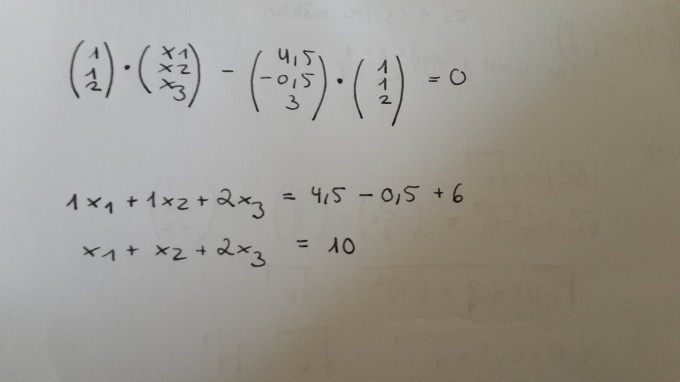 (1 1 2) · (x1 x2 x3) − (4,5 −0,5 3) · (1 1 2) = 0
1x1 + 1x2 + 2x3 = 4,5 − 0,5 + 6
x1 + x2 + 2x3 = 10